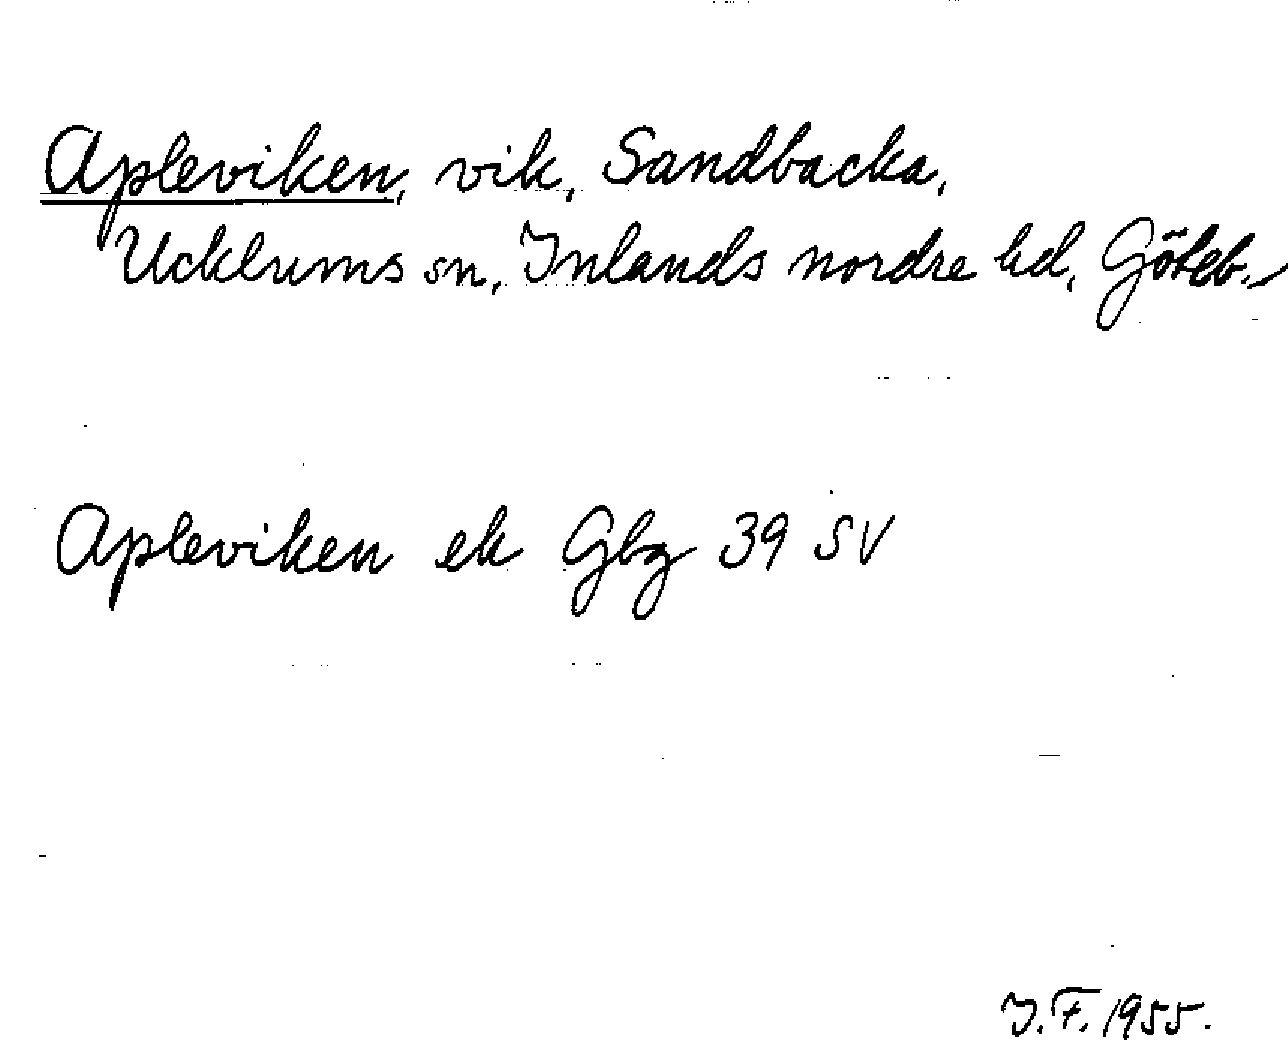 Apleviken, vik, Sandbacka,
Ucklums sn, Inlands nordre hd, Göteb.
Apleviken ek Gbg 39 SV
I.F. 1955.